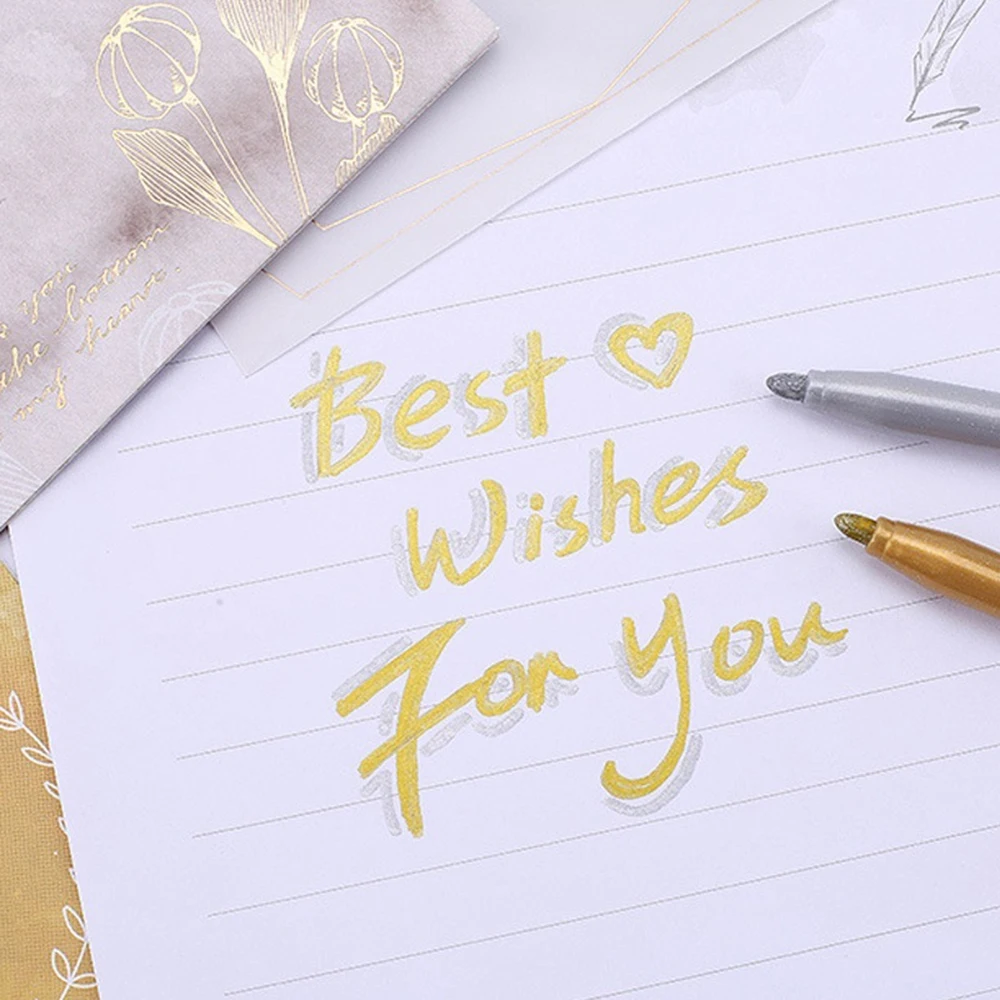 you
the bottom
my heart.
Best
Wishes
For You